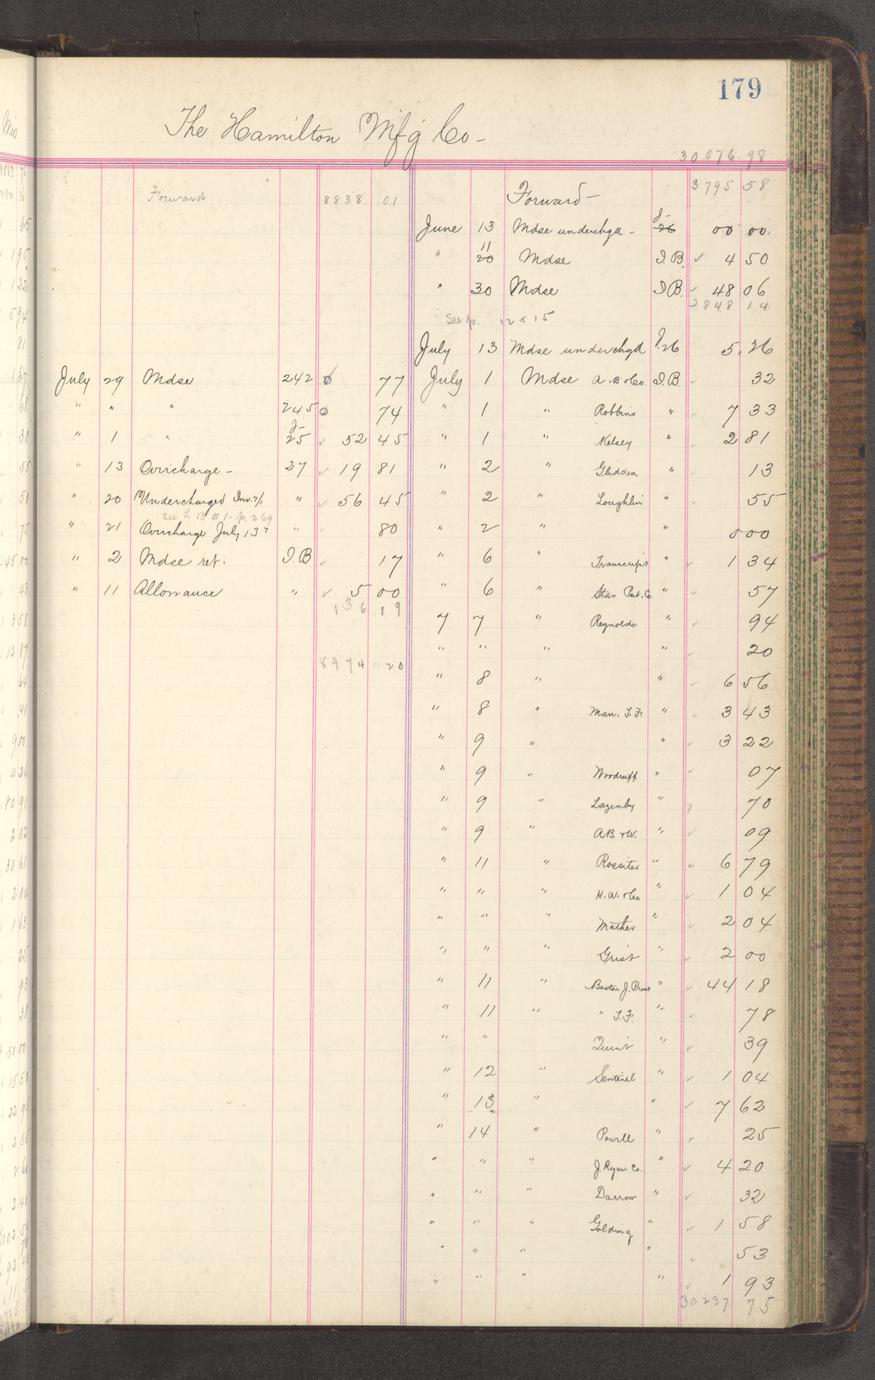 179
The Hamilton Mfg Co-
30076.98
Forward 8838 01
July 29 Mdse 242 77
" " " 245 74
" 1 " J- 25 52 45
" 13 Overcharge - 27 19 81
" 20 Undercharged Inv. 7/1 " 56 45
See L. B # 1 - p. 269
" 21 Overcharge July 13th " 80
" 2 Mdse ret. I.B 17
" 11 Allowance " 5 00
136 19
8974 20
Forward - 3795 58
June 13 Mdse underchgd - J- 26 00 00
" 11 20 Mdse I.B. 4 50
" 30 Mdse I.B. 48 06
3848 14
See p. 12 & 15
July 13 Mdse underchgd J.26 5.26
July 1 Mdse A.B & Co. I.B. 32
" 1 " Robbins " 7 33
" 1 " Kelsey " 2 81
" 2 " Glidden " 13
" 2 " Loughlin " 55
" 2 " " 5 00
" 6 " Transcript " 1 34
" 6 " Star Pub. Co " 57
7 7 " Reynolds " 94
" " " " 20
" 8 " " 6 56
" 8 " Man. T.F. " 3 43
" 9 " " 3 22
" 9 " Woodruff " 07
" 9 " Lazenby " 70
" 9 " A.B. & W. " 09
" 11 " Rossiter " 6 79
" " " H.W. & Co " 1 04
" " " Mather " 2 04
" " " Grist " 2 00
" 11 " Boston J. Print " 44 18
" 11 " " T.F. " 78
" " Quint " 39
" 12 " Sentinel " 1 04
" 13 " " 7 62
" 14 " Powell " 25
" " " J Ryan Co. " 4 20
" " " Darrow " 32
" " " Golding " 1 58
" " " " 53
" " " " 1 93
30237 75